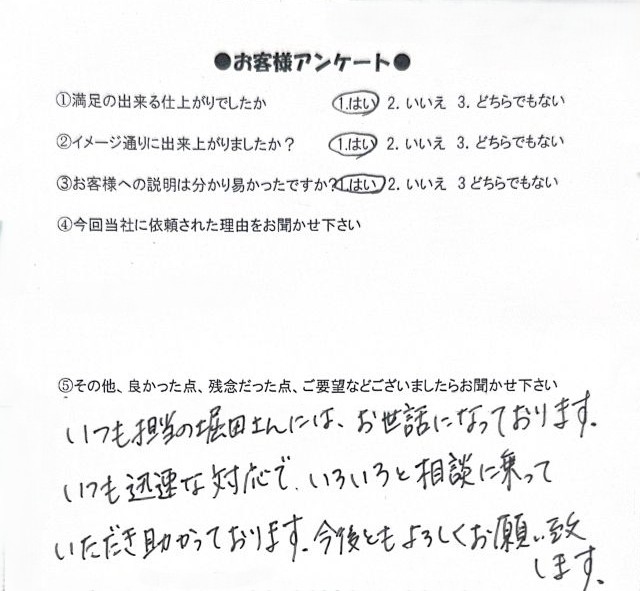 ●お客様アンケート●
①満足の出来る仕上がりでしたか 1.はい 2. いいえ 3. どちらでもない
②イメージ通りに出来上がりましたか？ 1.はい 2. いいえ 3. どちらでもない
③お客様への説明は分かり易かったですか？1.はい 2. いいえ 3 どちらでもない
④今回当社に依頼された理由をお聞かせ下さい
⑤その他、良かった点、残念だった点、ご要望などございましたらお聞かせ下さい
いつも担当の堀田さんには、お世話になっております。
いつも迅速な対応で、いろいろと相談に乗って
いただき助かっております。今後ともよろしくお願い致
します。